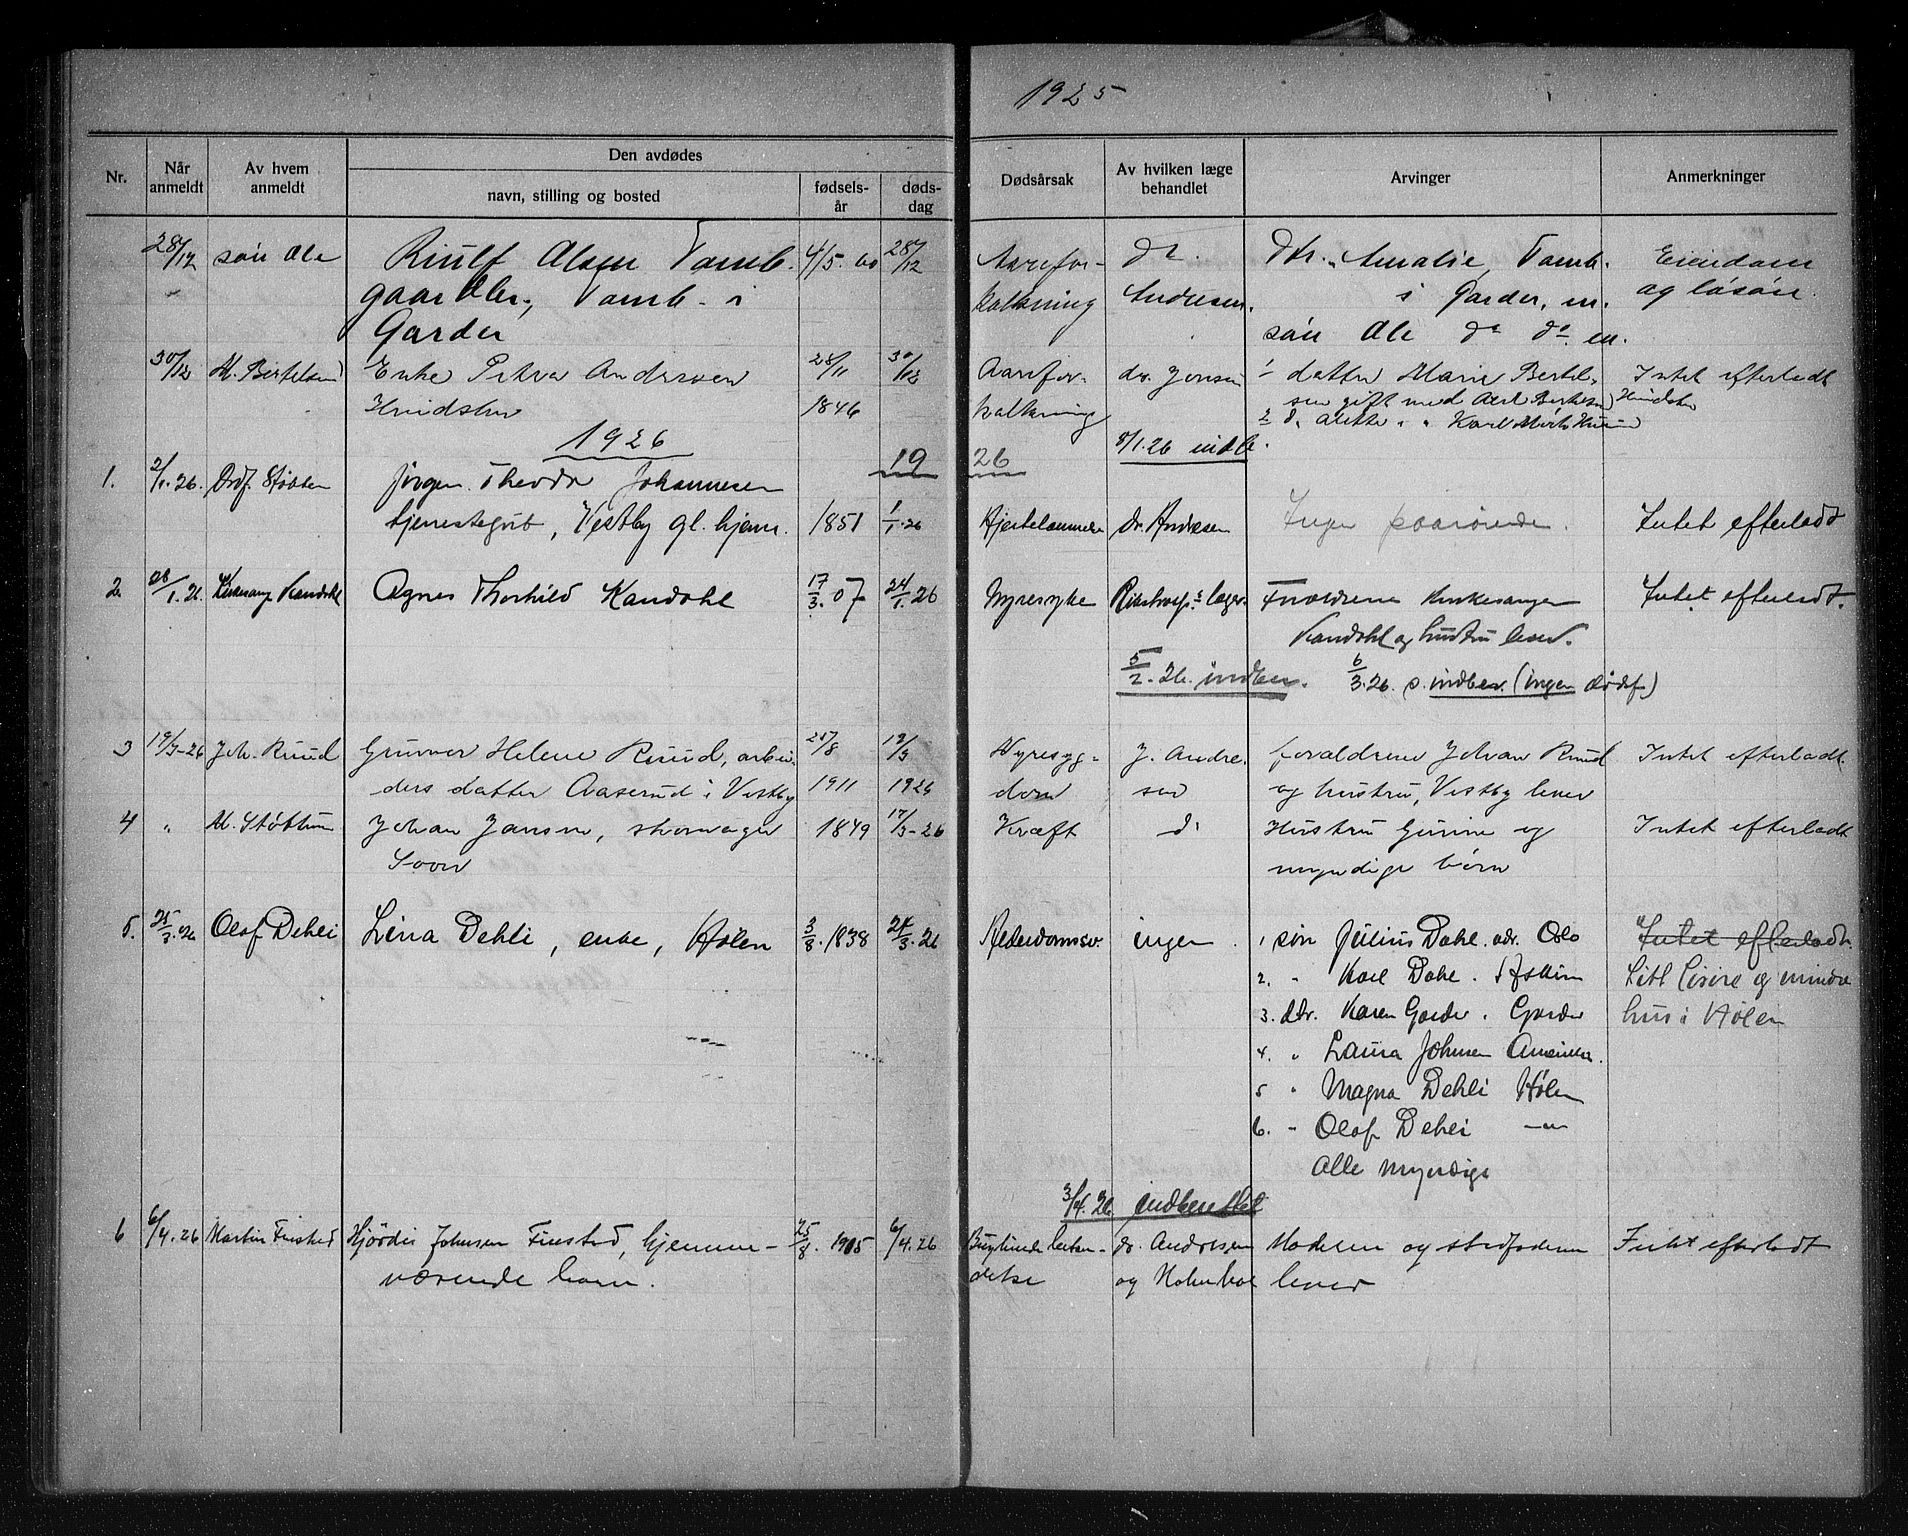 1925
Nr.
Når anmeldt
Av hvem anmeldt
Den avdødes
navn, stilling og bosted
fødsels-år
døds-dag
Dødsårsak
Av hvilken læge behandlet
Arvinger
Anmerkninger
28/12 søn Ole Olsen Tomb. 4/5. 60 28/12 Aarefor- dr. dtr. Amalie Tomb. Eiendom
gaardbr., Tomb i kalkning Andresen. i Garder, m. og løsøre.
Garder søn Ole do do m.
30/12 M. Bertelsen Enke Petra Andersen 28/11 30/12 Aarefor- dr. Jensen 1 datter Marie Bertel- Intet efterladt
1846 kalkning sen gift med Bertelsen
2 d. Karl
1926 8/1.26 indb.
19 26
1. 2/1.26. Jørgen Theodor Johannesen
tjenestegut, Vestby gl. hjem. 1851 1/1.26 Hjertelammelse dr. Andresen Ingen paarørende. Intet efterladt
2. 28/1.26. Kirkesang. Kandahl Agnes Thorhild Kandahl 17/3. 07 24/1.26 Nyresyke Rikshosp.s læger. Forældrene kirkesanger Intet efterladt.
Kandahl og hustru lever.
5/2.26. indber. 6/3.26. s. indber. (ingen dødsf.)
3 19/3-26 Joh. Ruud Gunvor Helene Ruud, arbei- 25/8 19/3 Nyresyg- J. Andre- forældrene Johan Ruud Intet efterladt
ders datter Aaserud i Vestby 1911 1926 dom sen og hustru, Vestby lever
4 " M. Støttum Johan Jansen, 1849 17/3-26 Kræft d. Hustru Gurine og Intet efterladt
Soon myndige børn
5. 25/3.26 Olaf Dehli Lina Dehli, enke, Hølen 3/8. 1838 24/3.26 Alderdomssv. ingen. 1. søn Julius Dahl. adr. Oslo Intet efterladt.
2. " Karl Dahl. Askim Litt løsøre og mindre
3. dtr. Karen Garder. Garder hus i Hølen
4. " Laura Johnsen Amerika.
5 " Magna Dehli Hølen
6. " Olaf Dehli —"—
Alle myndige
3/4.26. indberettet
6 6/4.26 Martin Finstad Hjørdis Johnsen Finstad, hjemme- 25/8. 1905 6/4.26 dr. Andresen Moderen og stedfaderen Intet efterladt
værende barn. og lever